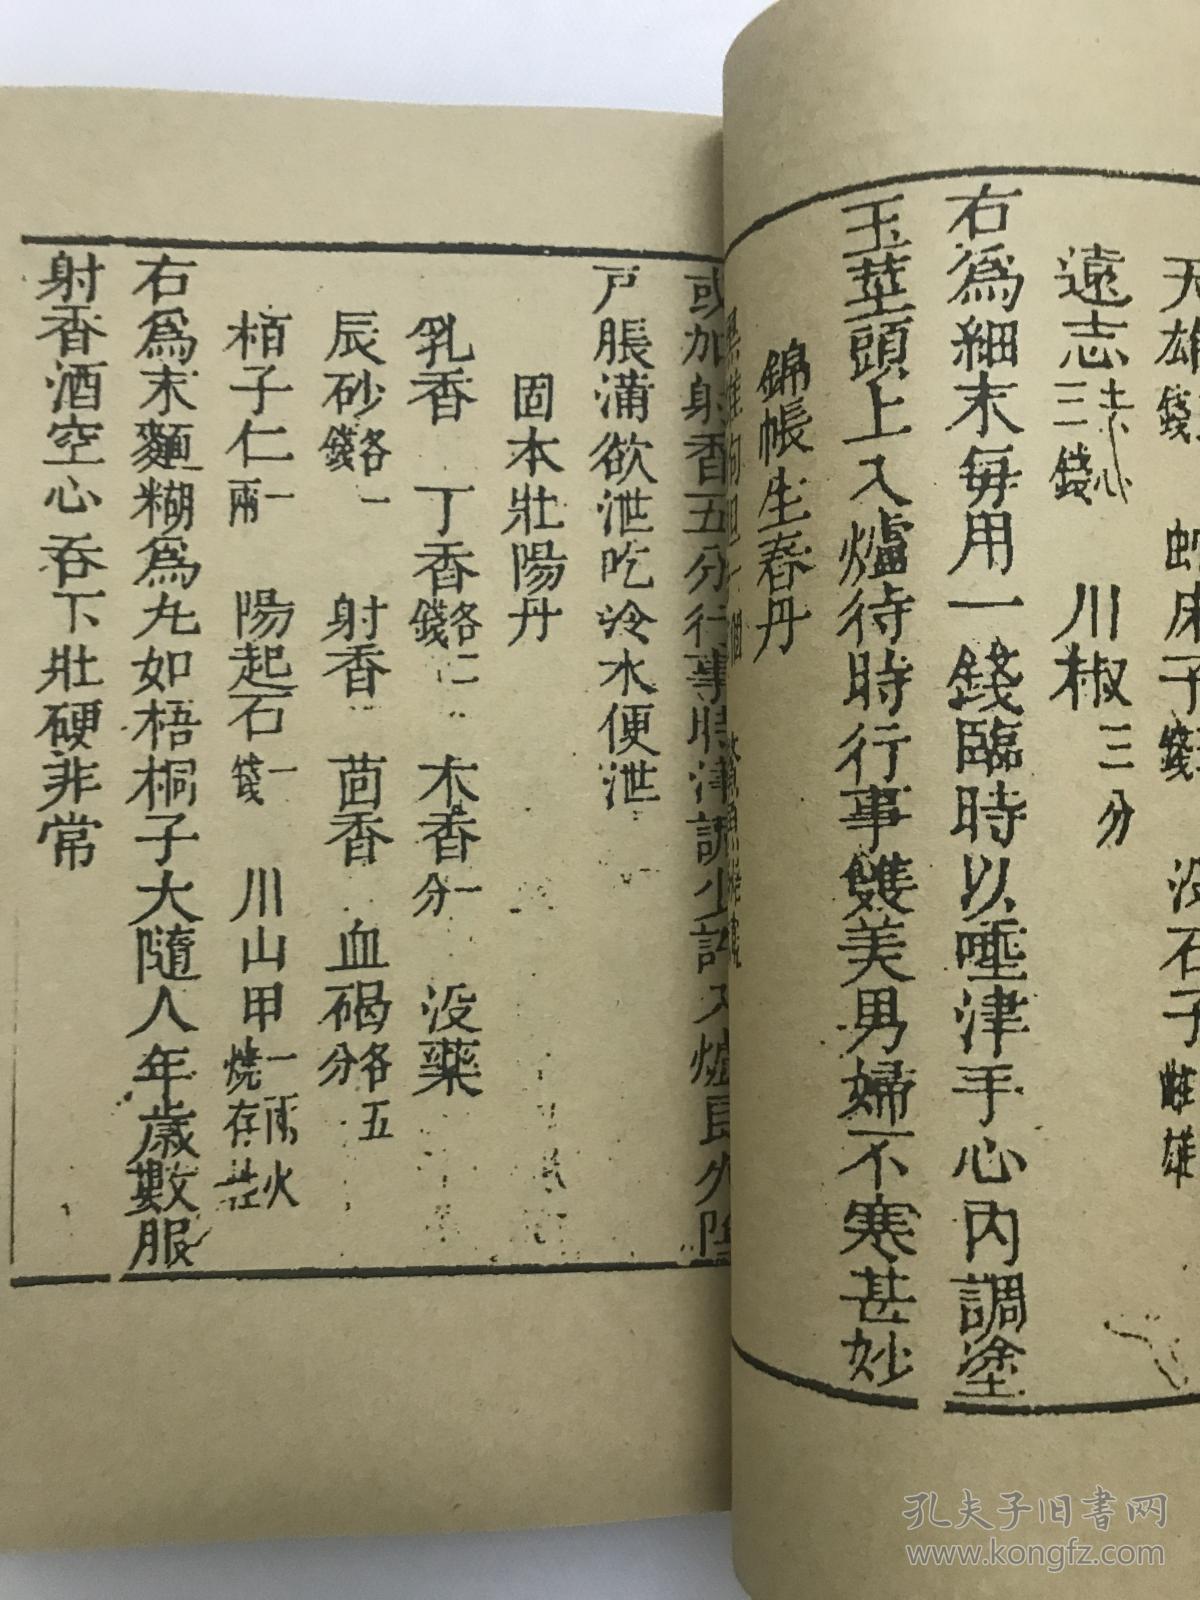 天雄 蛇床子 没石子 雌雄
遠志 去心三錢 川椒 三分
右爲細末每用一錢臨時以唾津手心內調塗
玉莖頭上入爐待時行事雙美男婦不寒甚妙
錦帳生春丹
或加射香五分行事時津調少許入爐良久陰
戶脹滿欲泄吃冷水便泄
固本壯陽丹
乳香 丁香 各二錢 木香 一分 没藥
辰砂 各一錢 射香 茴香 血碣 各五分
栢子仁 一兩 陽起石 一錢 川山甲 一兩火燒存性
右爲末麵糊爲丸如梧桐子大隨人年歲數服
射香酒空心吞下壯硬非常
孔夫子旧书网
www.kongfz.com